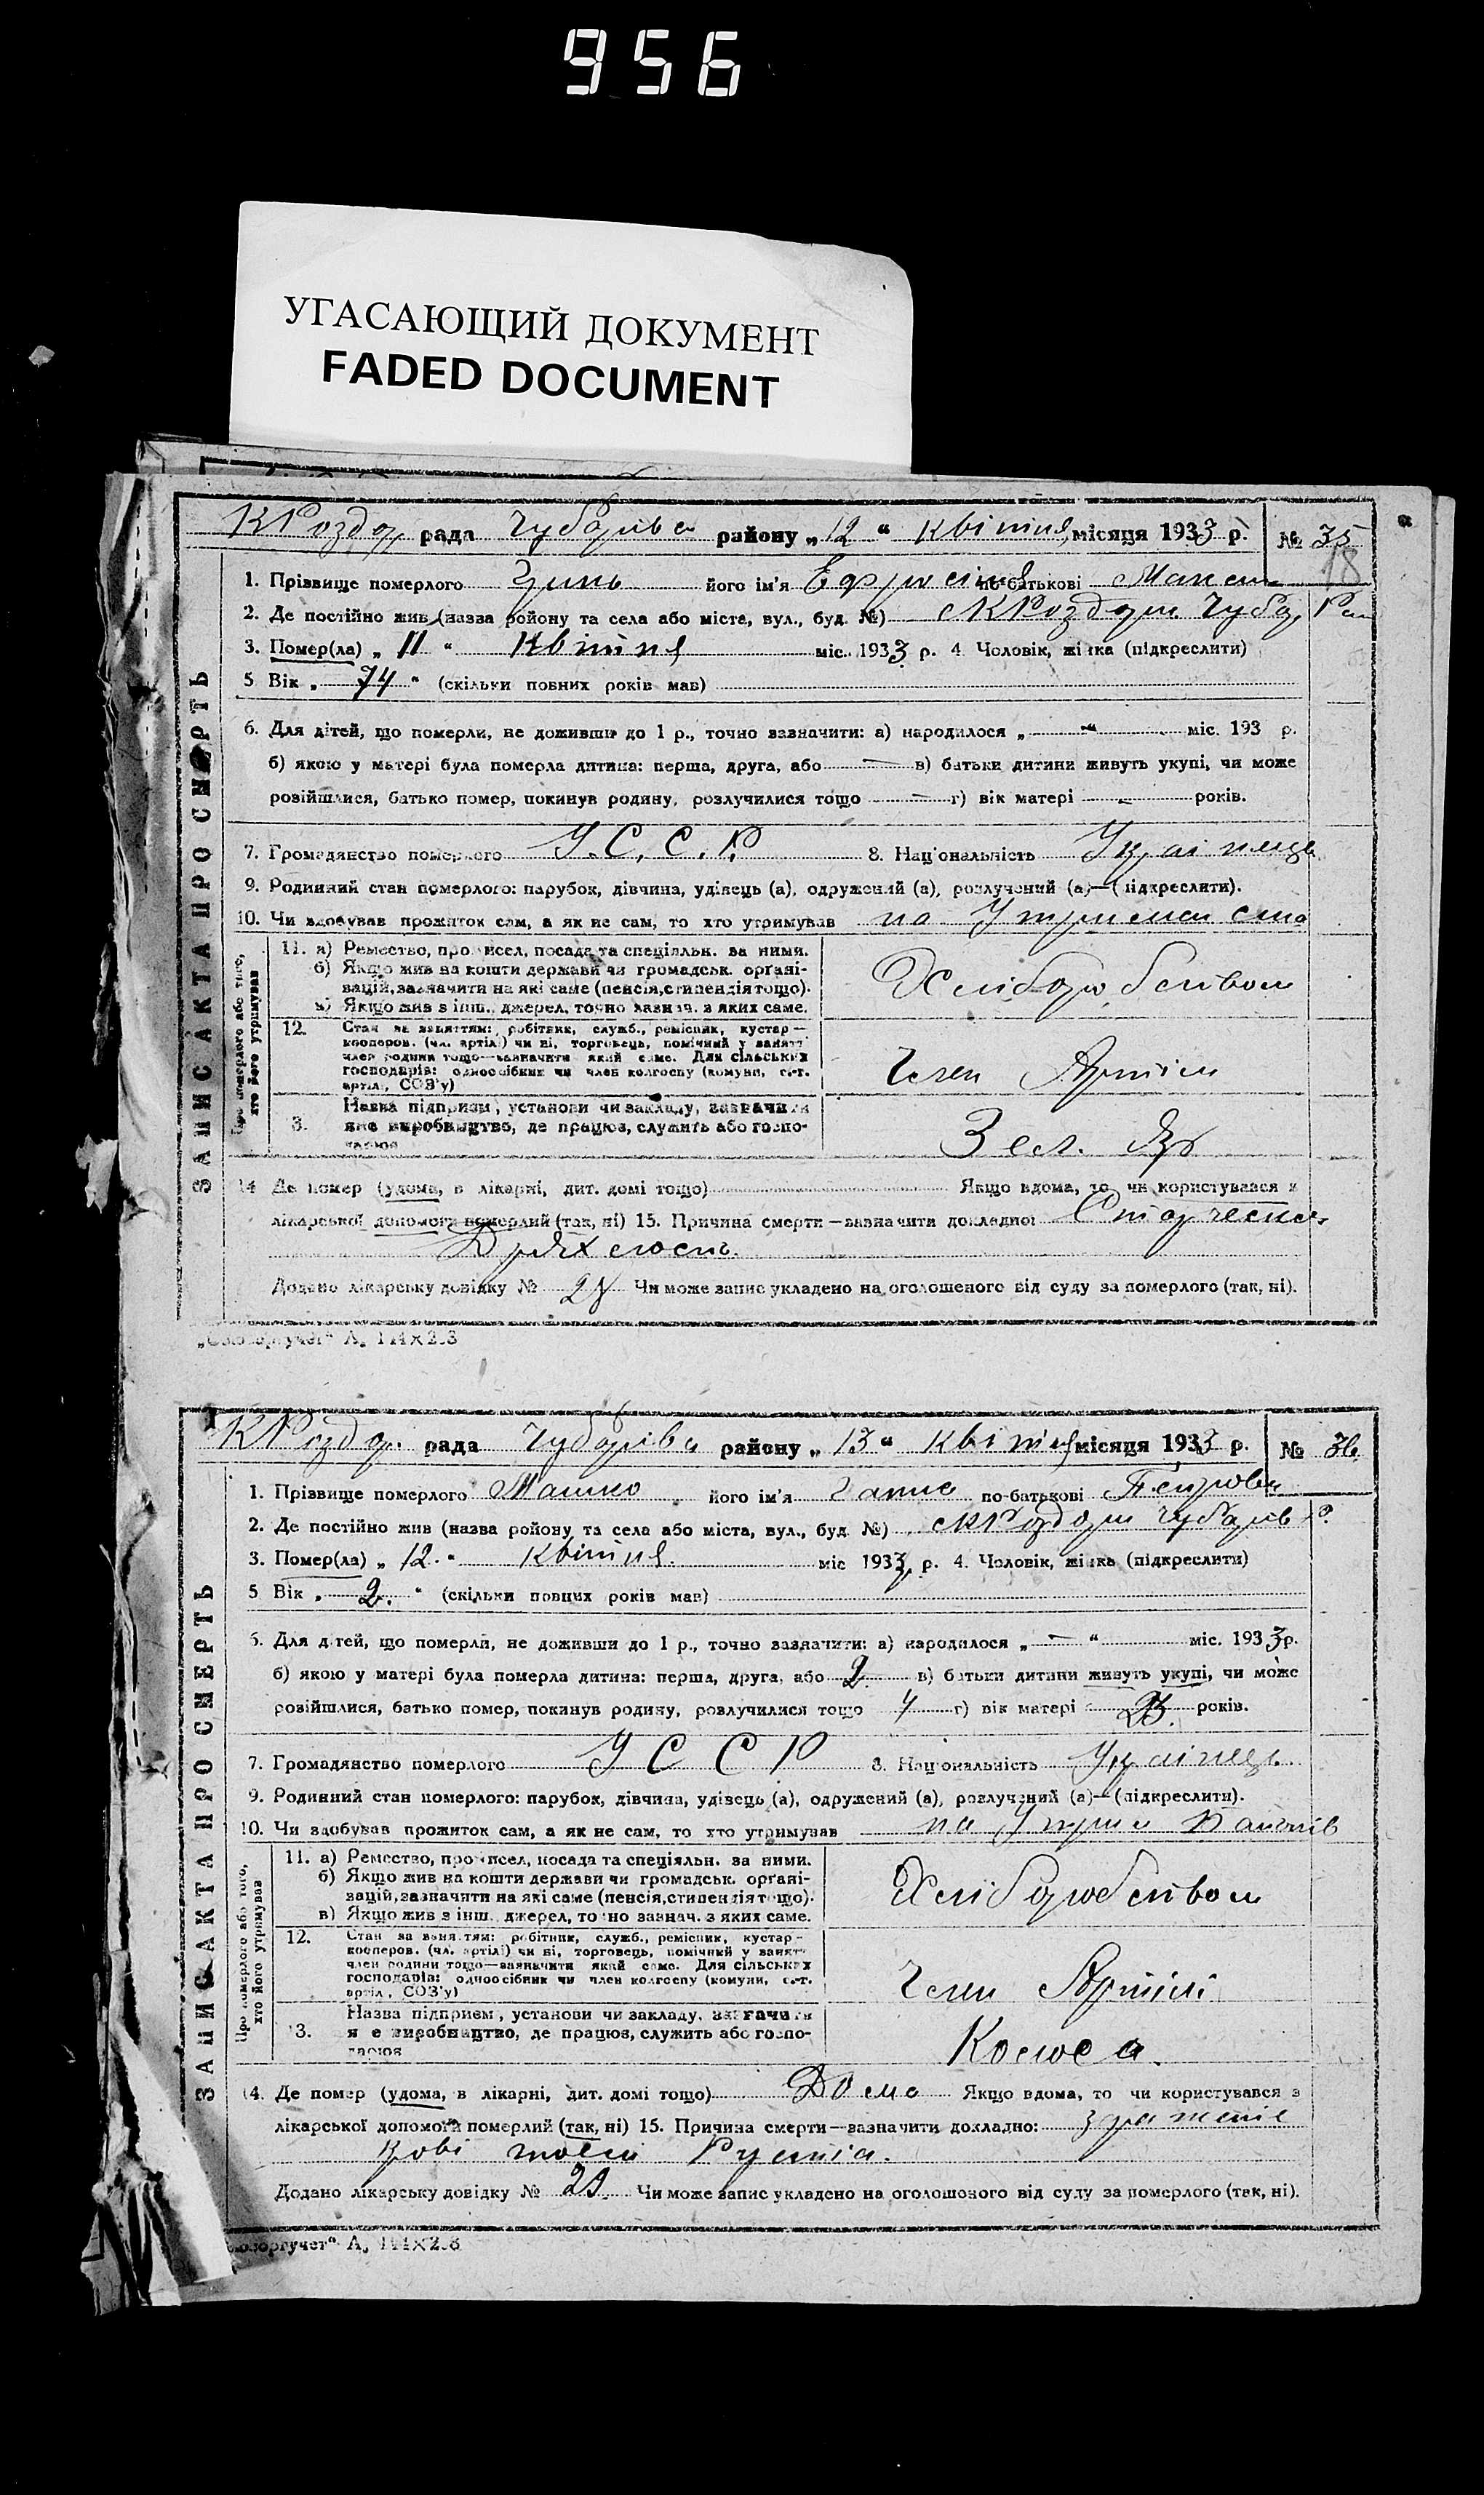 956
УГАСАЮЩИЙ ДОКУМЕНТ
FADED DOCUMENT
К Роздор рада Чубарівск району „ 12 “ квітня місяця 1933 р. № 35
18
1. Прізвище померлого Цинь його ім'я Ефросинія по-батькові Максим
2. Де постійно жив (назва району та села або міста, вул., буд. №) с К Роздори Чубар Рай
3. Помер(ла) „ 11 “ Квітня міс. 1933 р. 4. Чоловік, жінка (підкреслити)
5 Вік „ 74 “ (скільки повних років мав)
6. Для дітей, що померли, не доживши до 1 р., точно зазначити: а) народилося „ “ міс. 193 р.
б) якою у матері була померла дитина: перша, друга, або — в) батьки дитини живуть укупі, чи може
розійшлися, батько помер, покинув родину, розлучилися тощо — г) вік матері — років.
7. Громадянство померлого У.С.С.Р. 8. Національність Українець
9. Родинний стан померлого: парубок, дівчина, удівець (а), одружений (а), розлучений (а)—(підкреслити).
10. Чи здобував прожиток сам, а як не сам, то хто утримував на Утримані сина
ЗАПИС АКТА ПРО СМЕРТЬ
Про померлого або того,
хто його утримував
11. а) Ремество, промисел, посада та спеціяльн. за ними.
б) Якщо жив на кошти держави чи громадськ. органі-
зацій, зазначити на які саме (пенсія, стипендія тощо).
в) Якщо жив з інш. джерел, точно зазнач. з яких саме.
Хліборобством
12. Стан за заняттям: робітник, служб., ремісник, кустар—
кооперов. (чл. артілі) чи ні, торговець, помічний у занятт
член родини тощо—зазначити який саме. Для сільських
господарів: одноосібник чи член колгоспу (комуни, с.-г.
артіл., СОЗ'у)
Член Артіли
3. Назва підприєм., установи чи закладу, зазначити
яке виробництво, де працює, служить або госпо-
дарює
14 Де помер (удома, в лікарні, дит. домі тощо) Якщо вдома, то чи користувався з
лікарської допомоги померлий (так, ні) 15. Причина смерти—зазначити докладно: Старческая
Дряхлость.
Додано лікарську довідку № Чи може запис укладено на оголошеного від суду за померлого (так, ні).
К Роздор. рада Чубарівск району „ 13 “ квітня місяця 1933 р. № 36
1. Прізвище померлого Машко його ім'я Ганна по-батькові Петровна
2. Де постійно жив (назва району та села або міста, вул., буд. №) с К Роздори Чубарів р.
3. Помер(ла) „ 12. “ Квітня. міс 1933 р. 4. Чоловік, жінка (підкреслити)
5 Вік „ 2. “ (скільки повних років мав)
6. Для дітей, що померли, не доживши до 1 р., точно зазначити: а) народилося „ — “ міс. 1933 р.
б) якою у матері була померла дитина: перша, друга, або 2 в) батьки дитини живуть укупі, чи може
розійшлися, батько помер, покинув родину, розлучилися тощо г) вік матері 23. років.
7. Громадянство померлого У С С Р 8. Національність Українець
9. Родинний стан померлого: парубок, дівчина, удівець (а), одружений (а), розлучений (а)—(підкреслити).
10. Чи здобував прожиток сам, а як не сам, то хто утримував на Утрим Батьків
ЗАПИС АКТА ПРО СМЕРТЬ
Про померлого або того,
хто його утримував
11. а) Ремество, промисел, посада та спеціяльн. за ними.
б) Якщо жив на кошти держави чи громадськ. органі-
зацій, зазначити на які саме (пенсія, стипендія тощо).
в) Якщо жив з інш. джерел, точно зазнач. з яких саме.
Хліборобством
12. Стан за заняттям: робітник, служб., ремісник, кустар—
кооперов. (чл. артілі) чи ні, торговець, помічний у занятт
член родини тощо—зазначити який саме. Для сільських
господарів: одноосібник чи член колгоспу (комуни, с.-г.
артіл., СОЗ'у)
Член Артіли
3. Назва підприєм., установи чи закладу, зазначити
яке виробництво, де працює, служить або госпо-
дарює
14. Де помер (удома, в лікарні, дит. домі тощо) Дома Якщо вдома, то чи користувався з
лікарської допомоги померлий (так, ні) 15. Причина смерти—зазначити докладно:
крові
Додано лікарську довідку № Чи може запис укладено на оголошеного від суду за померлого (так, ні).